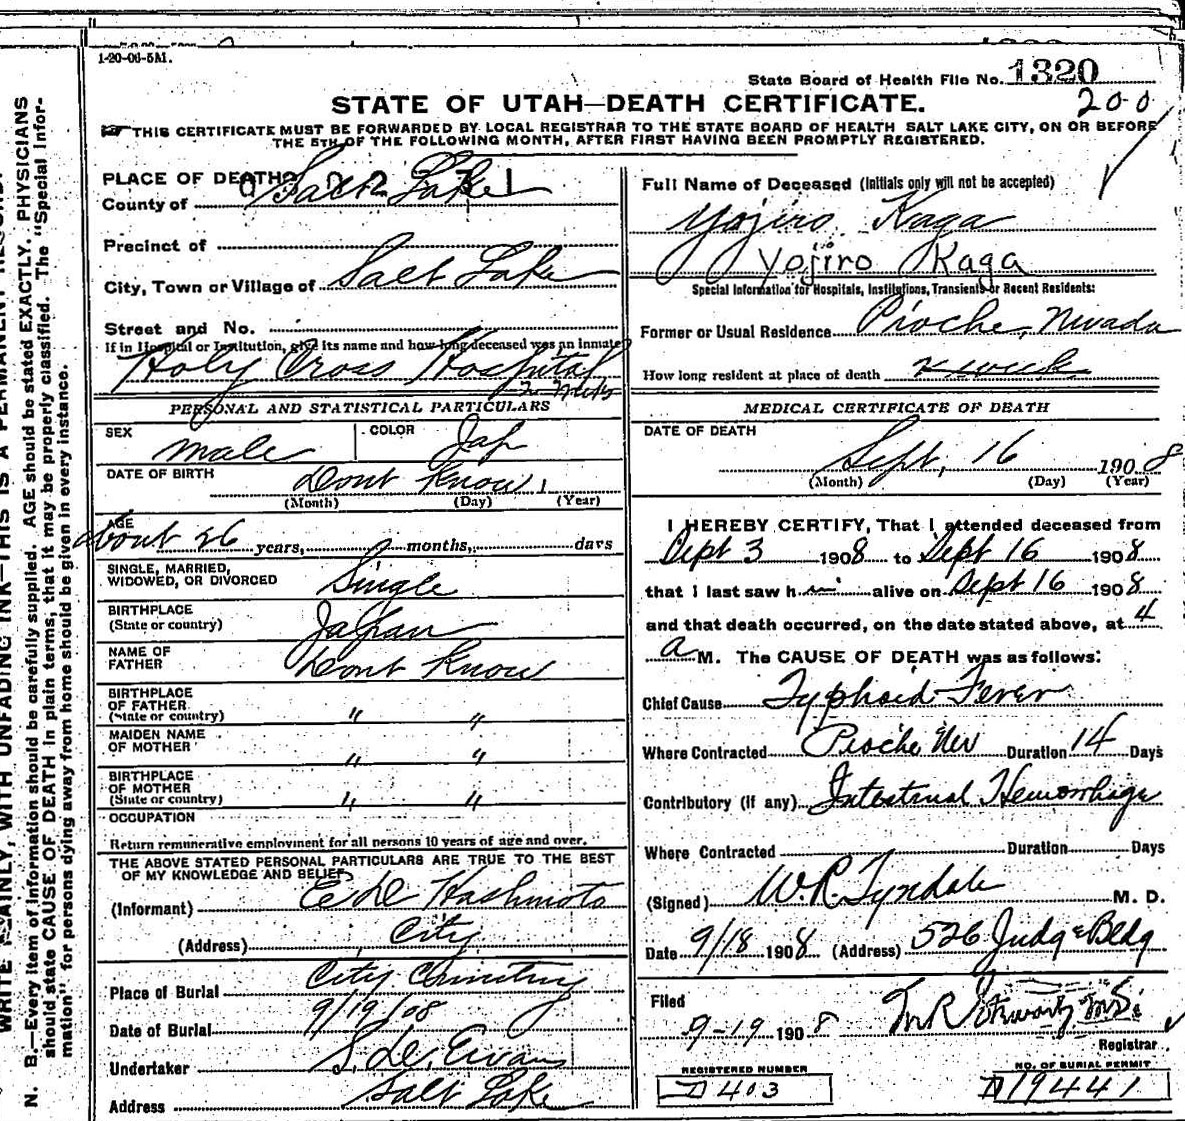 1-20-06-5M.
State Board of Health File No. 1320
200
STATE OF UTAH—DEATH CERTIFICATE.
THIS CERTIFICATE MUST BE FORWARDED BY LOCAL REGISTRAR TO THE STATE BOARD OF HEALTH SALT LAKE CITY, ON OR BEFORE
THE 5TH OF THE FOLLOWING MONTH, AFTER FIRST HAVING BEEN PROMPTLY REGISTERED.
PLACE OF DEATH
County of Salt Lake
Precinct of
City, Town or Village of Salt Lake
Street and No.
If in Hospital or Institution, give its name and how long deceased was an inmate
Holy Cross Hospital
2 weeks
PERSONAL AND STATISTICAL PARTICULARS
SEX male COLOR Jap
DATE OF BIRTH Dont Know
(Month) (Day) (Year)
AGE
about 26 years, months, days
SINGLE, MARRIED,
WIDOWED, OR DIVORCED Single
BIRTHPLACE
(State or country) Japan
NAME OF
FATHER Dont Know
BIRTHPLACE
OF FATHER
(State or country) " "
MAIDEN NAME
OF MOTHER " "
BIRTHPLACE
OF MOTHER
(State or country) " "
OCCUPATION
Return remunerative employment for all persons 10 years of age and over.
THE ABOVE STATED PERSONAL PARTICULARS ARE TRUE TO THE BEST
OF MY KNOWLEDGE AND BELIEF
(Informant) Hashmoto
(Address) City
Place of Burial City Cemetery
Date of Burial 9/19/08
Undertaker Evans
Address Salt Lake
Full Name of Deceased (Initials only will not be accepted)
Yojiro Kaga
Yojiro Kaga
Special Information for Hospitals, Institutions, Transients or Recent Residents:
Former or Usual Residence Pioche, Nevada
How long resident at place of death
MEDICAL CERTIFICATE OF DEATH
DATE OF DEATH
Sept, 16 1908
(Month) (Day) (Year)
I HEREBY CERTIFY, That I attended deceased from
Sept 3 1908 to Sept 16 1908
that I last saw him alive on Sept 16 1908
and that death occurred, on the date stated above, at 4
a M. The CAUSE OF DEATH was as follows:
Chief Cause Typhoid Fever
Where Contracted Pioche Nev Duration 14 Days
Contributory (if any) Intestinal Hemorrhage
Where Contracted Duration Days
(Signed) W.R. Tyndale M. D.
Date 9/18 1908 (Address) 526 Judge Bldg
Filed
9-19 1908
Registrar
REGISTERED NUMBER
D 403
NO. OF BURIAL PERMIT
D19441
WRITE PLAINLY, WITH UNFADING INK—THIS IS A PERMANENT RECORD.
N. B.—Every item of information should be carefully supplied. AGE should be stated EXACTLY. PHYSICIANS
should state CAUSE OF DEATH in plain terms, that it may be properly classified. The "Special Infor-
mation" for persons dying away from home should be given in every instance.